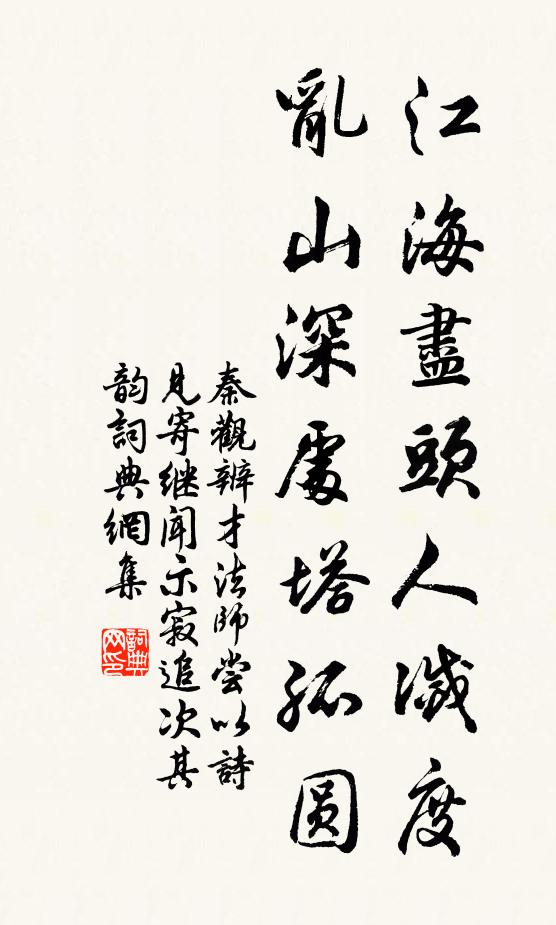 江海盡頭人滅度
亂山深處塔孤圓
秦觀辨才法師嘗以詩
見寄继聞示寂追次其
韵詞典網集
詞典网印